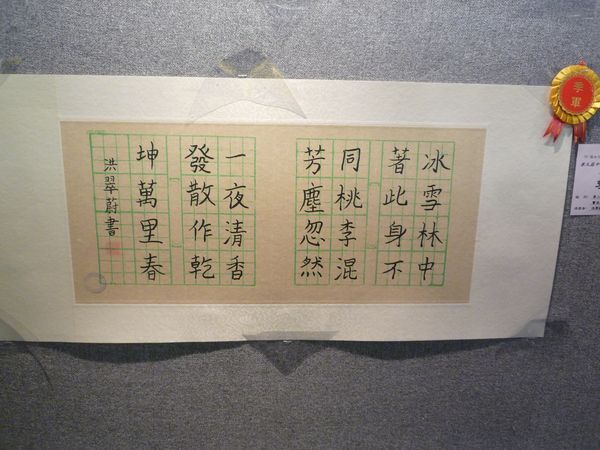 冰雪林中
著此身不
同桃李混
芳塵忽然
一夜清香
發散作乾
坤萬里春
洪翠蔚書
季軍